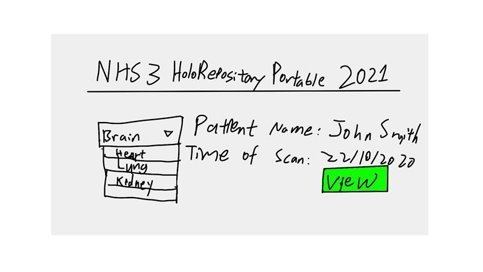 NHS3 HoloRepository Portable 2021
Brain
Heart
Lung
Kidney
Patient Name: John Smith
Time of Scan: 22/10/2020
View